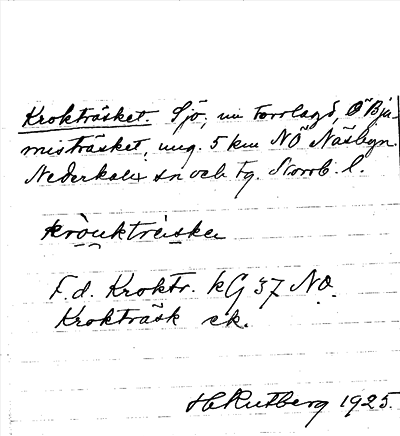 Krokträsket. Sjö, nu torrlagd, Ö Bju-
misträsket, ung. 5 km NÖ Näsbyn.
Nederkalix sn och tg. Norrb. l.
kròuktrèiskeı
F.d. Kroktr. kG 37 NO.
Krokträsk ek.
H Rutberg 1925.